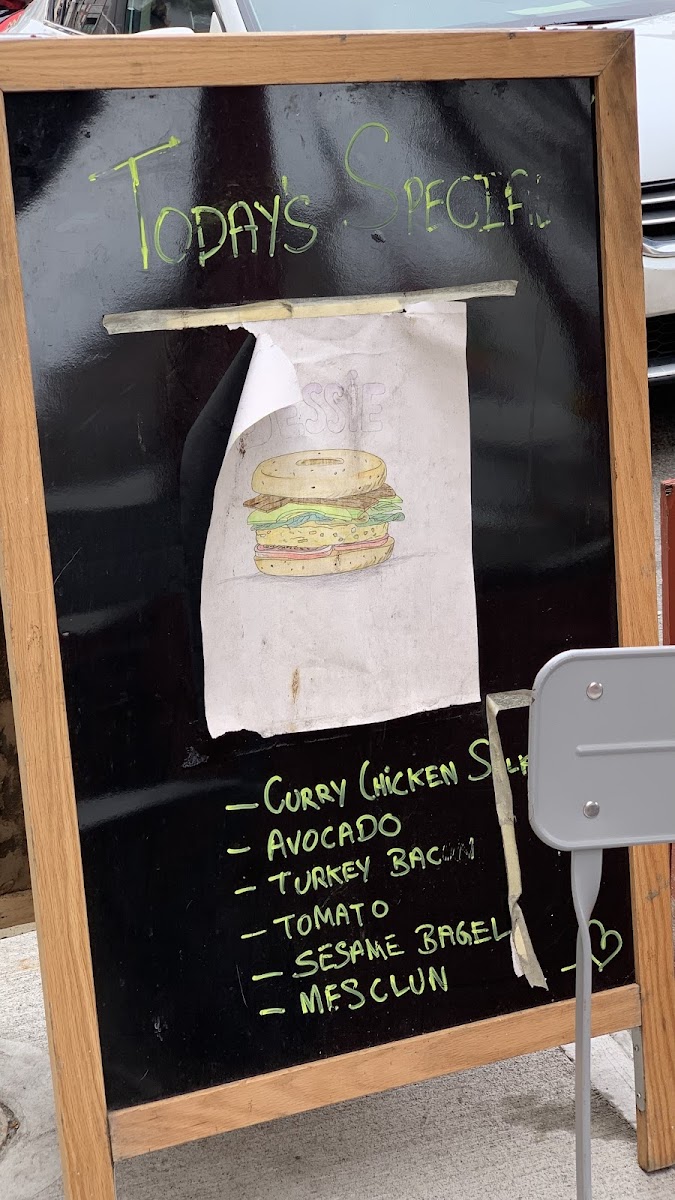 TODAY'S SPECIAL
JESSIE
- CURRY CHICKEN
- AVOCADO
- TURKEY BACON
- TOMATO
- SESAME BAGEL
- MESCLUN